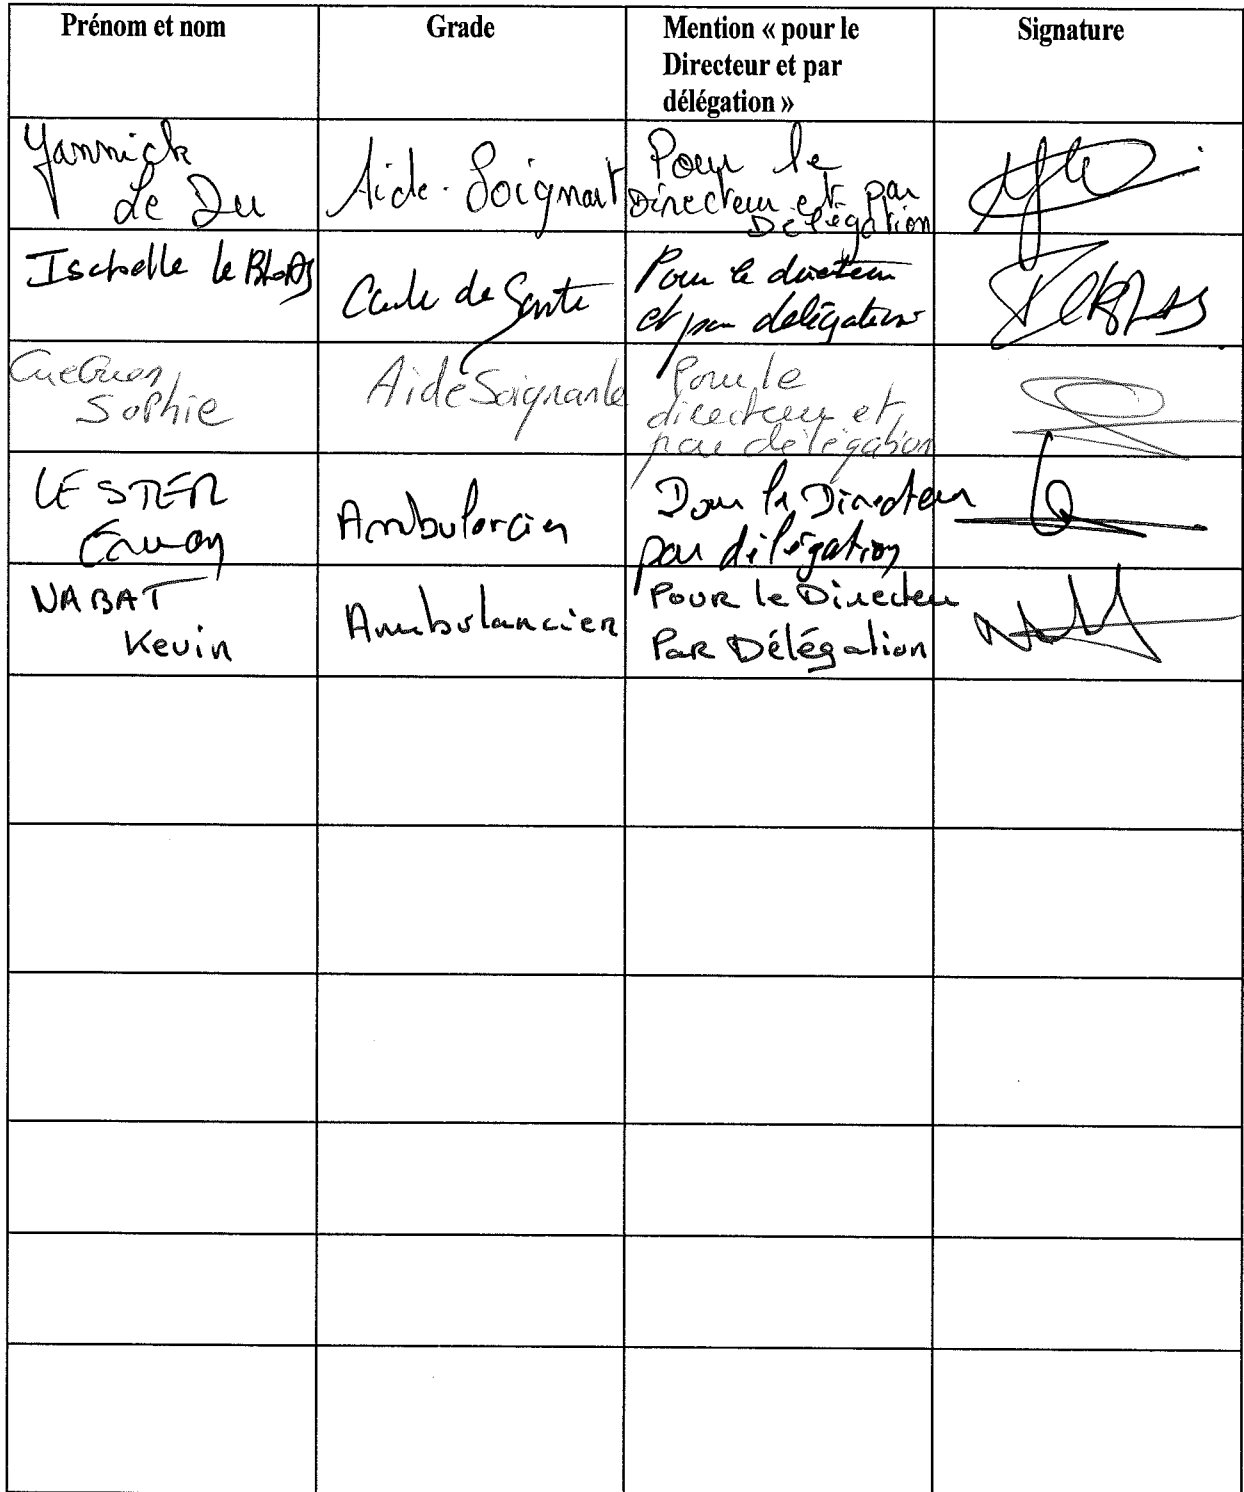 Prénom et nom
Grade
Mention « pour le
Directeur et par
délégation »
Signature
Yannick
Le Du
Aide-Soignant
Pour le
Directeur et par
Délégation
Isabelle le Blas
Cadre de Santé
Pour le directeur
et par délégation
LE BLAS
Gueguen
Sophie
Aide Soignante
Pour le
directeur et
par délégation
LE STER
Ambulancier
Pour le Directeur
par délégation
NABAT
Kevin
Ambulancier
Pour le Directeur
Par Délégation